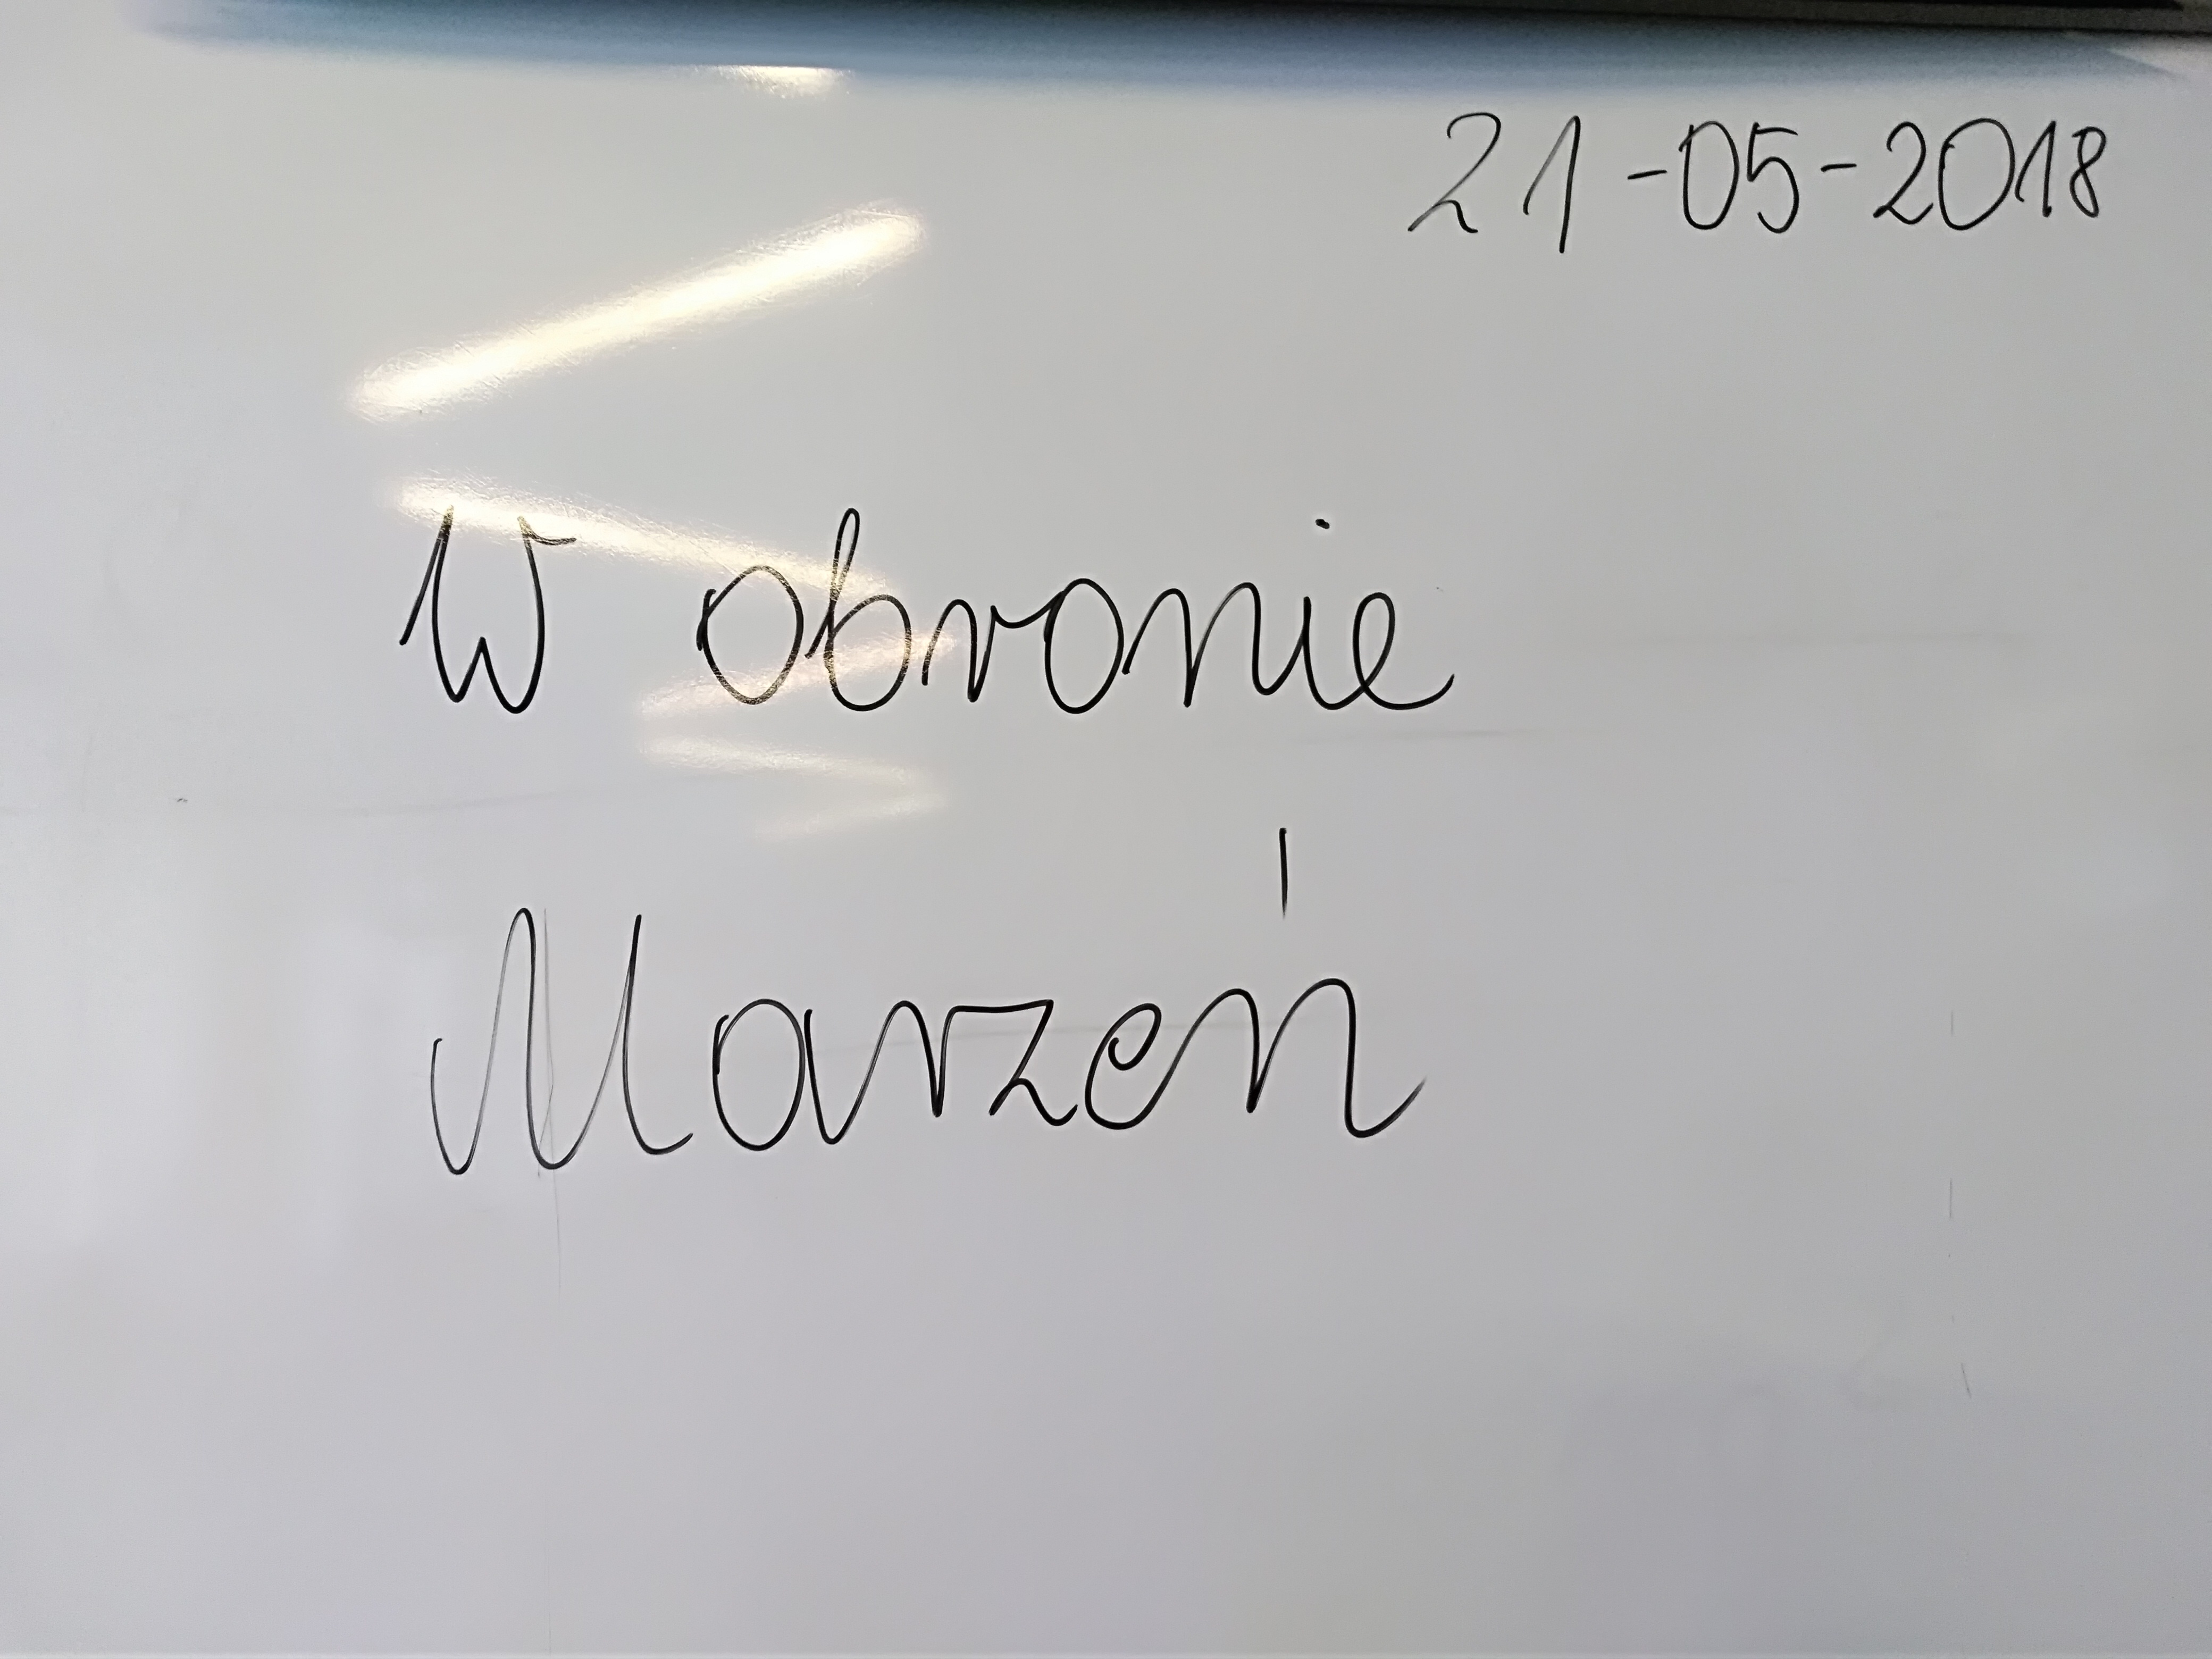 21-05-2018
W obronie
Marzeń